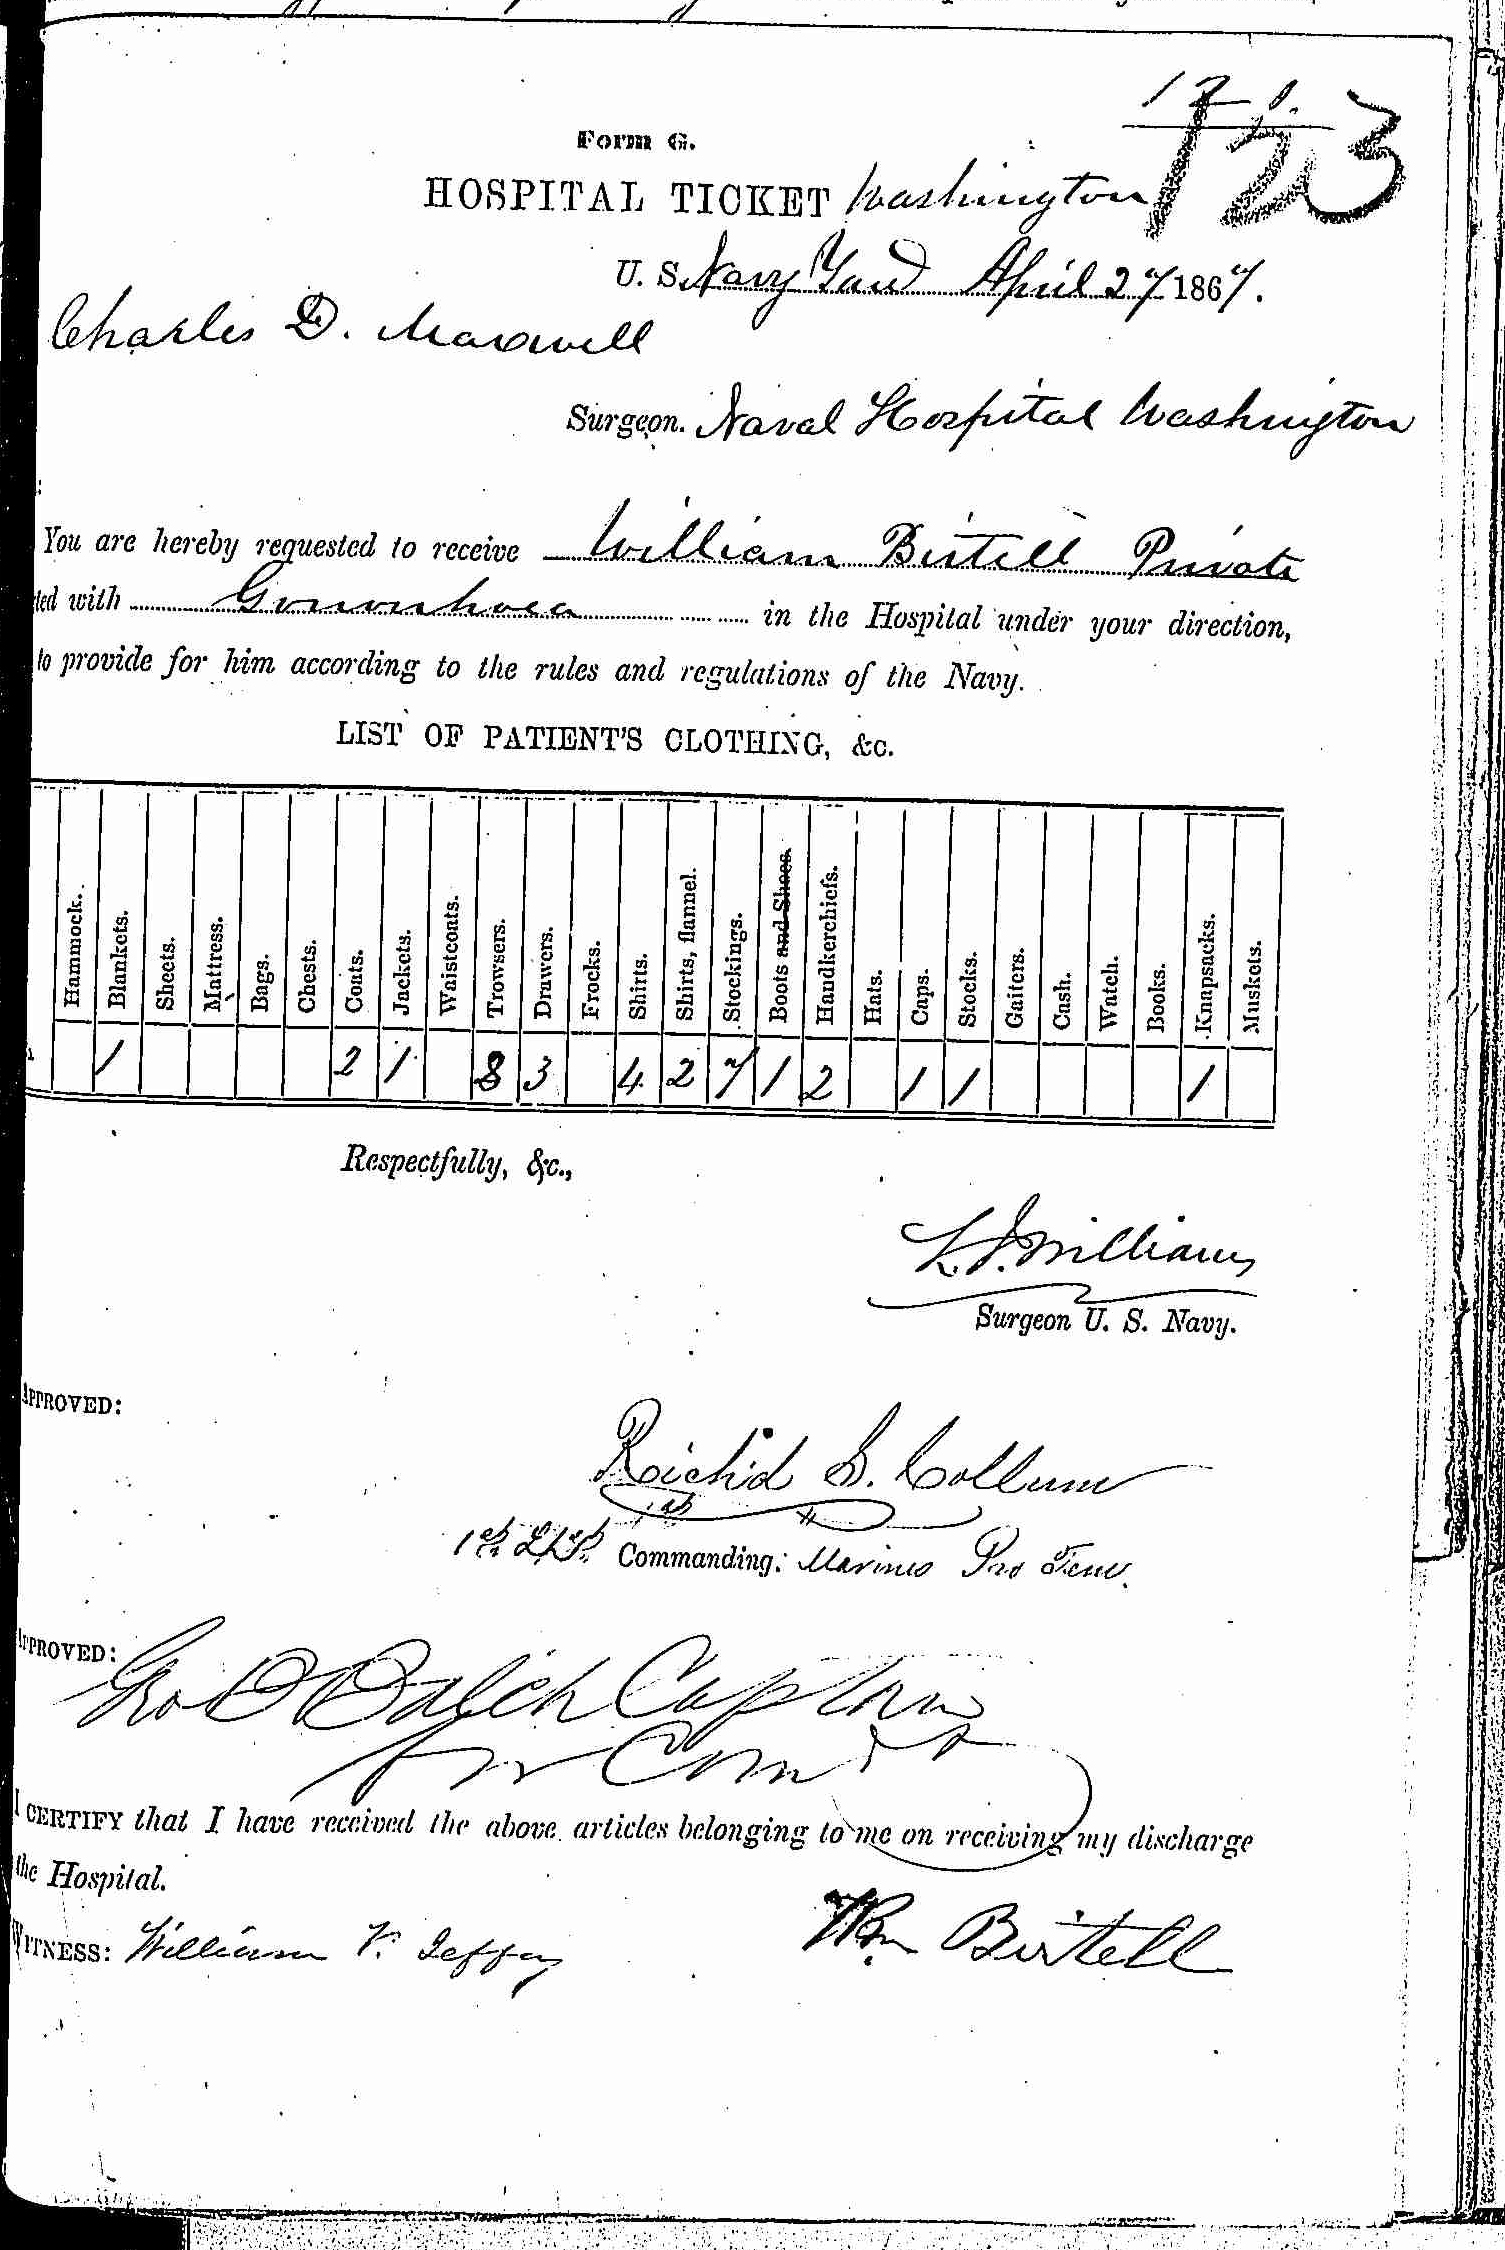 Form G.
123
HOSPITAL TICKET Washington
U. S. Navy Yard April 27 1867.
Charles D. Maxwell
Surgeon. Naval Hospital Washington
You are hereby requested to receive William Birtell Private
ted with Gonorrhoea in the Hospital under your direction,
to provide for him according to the rules and regulations of the Navy.
LIST OF PATIENT'S CLOTHING, &c.
Hammock. Blankets. Sheets. Mattress. Bags. Chests. Coats. Jackets. Waistcoats. Trowsers. Drawers. Frocks. Shirts. Shirts, flannel. Stockings. Boots and Shoes. Handkerchiefs. Hats. Caps. Stocks. Gaiters. Cash. Watch. Books. Knapsacks. Muskets.
1 2 1 8 3 4 2 7 1 2 1 1 1
Respectfully, &c.,
Williams
Surgeon U. S. Navy.
APPROVED:
Rich'd S. Collum
1st Lt. Commanding: Marines Pro Tem.
APPROVED:
Geo B Balch Captain
for Comdt
I CERTIFY that I have received the above articles belonging to me on receiving my discharge
the Hospital.
WITNESS: William V. Jeffay
Wm Birtell